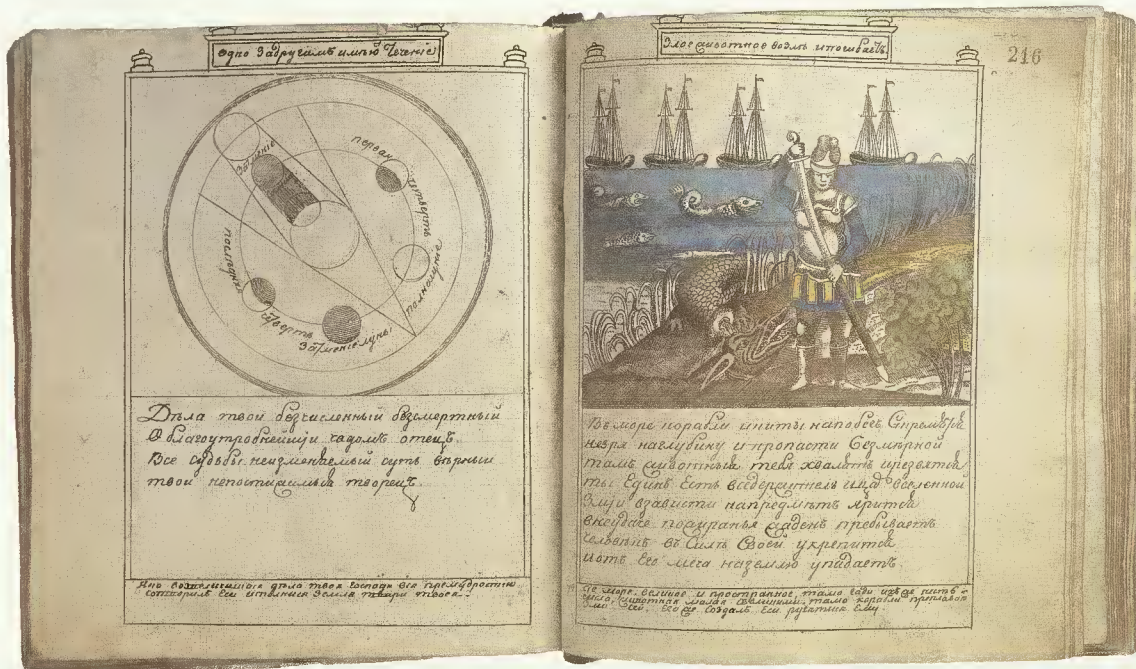 Одно за другимъ имѣю Теченіе
Затмѣніе
первая
четверть
полнолуніе
Затмѣніе луны
четверть
послѣдняя
Дѣла твои безчисленныи безсмертныи
О благоутробнѣйшіи чадомъ отецъ
Все судьбы неизмѣняемыи суть вѣрныи
твои непостижимыя творецъ
дѣла твоя Господи вся премудростію
сотворилъ еси исполнися Земля твари твоея
Злое животное возмъ и погибаетъ
216
Въ море корабли
на глубину и пропасти безмѣрной
тамъ животныя тебя хвалятъ
ты Единъ Есть вседержитель вселенной
Зміи в зависти на предметъ ярится
пребываетъ
человѣкъ въ Силѣ Своей укрепится
и отъ Его меча на землю упадаетъ
море великое и пространное, тамо гади ихже нѣсть
животная малая с великими, тамо корабли преплаваю
Его же создалъ Еси ругатися Ему